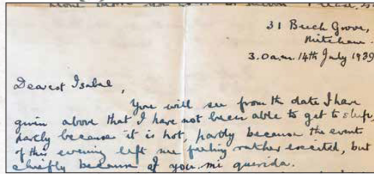 31 Beech Grove,
Mitcham.
3.0 a.m. 14th July 1939
Dearest Isabel,
You will see from the date I have
given above that I have not been able to get to sleep,
partly because it is hot, partly because the events
of this evening left me feeling rather excited, but
chiefly because of you, mi querida.